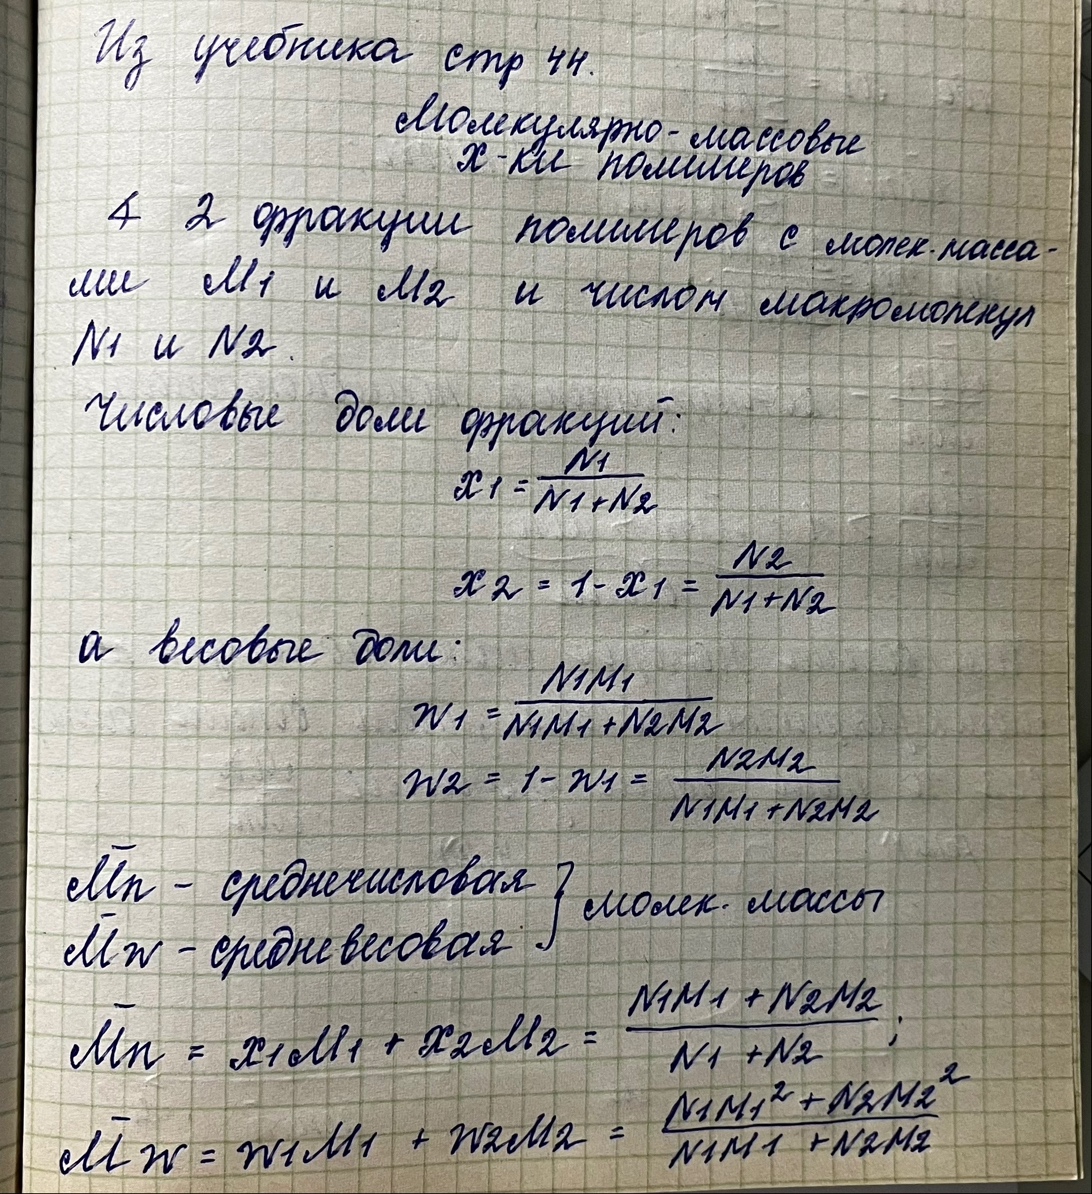 Из учебника стр 44.
Молекулярно-массовые
х-ки полимеров
∢ 2 фракции полимеров с молек. масса-
ми M1 и M2 и числом макромолекул
N1 и N2.
Числовые доли фракций:
x1 = N1 / (N1+N2)
x2 = 1 - x1 = N2 / (N1+N2)
а весовые доли:
w1 = N1M1 / (N1M1 + N2M2)
w2 = 1 - w1 = N2M2 / (N1M1 + N2M2)
M̄n - среднечисловая } молек. массы
M̄w - средневесовая
M̄n = x1M1 + x2M2 = (N1M1 + N2M2) / (N1 + N2) ;
M̄w = w1M1 + w2M2 = (N1M1² + N2M2²) / (N1M1 + N2M2)